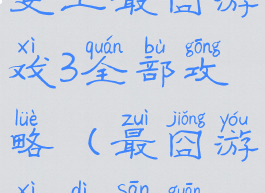 史上最囧游
xì quán bù gōng
戏3全部攻
lüè zuì jiǒng yóu
略（最囧游
xì dì sān guān